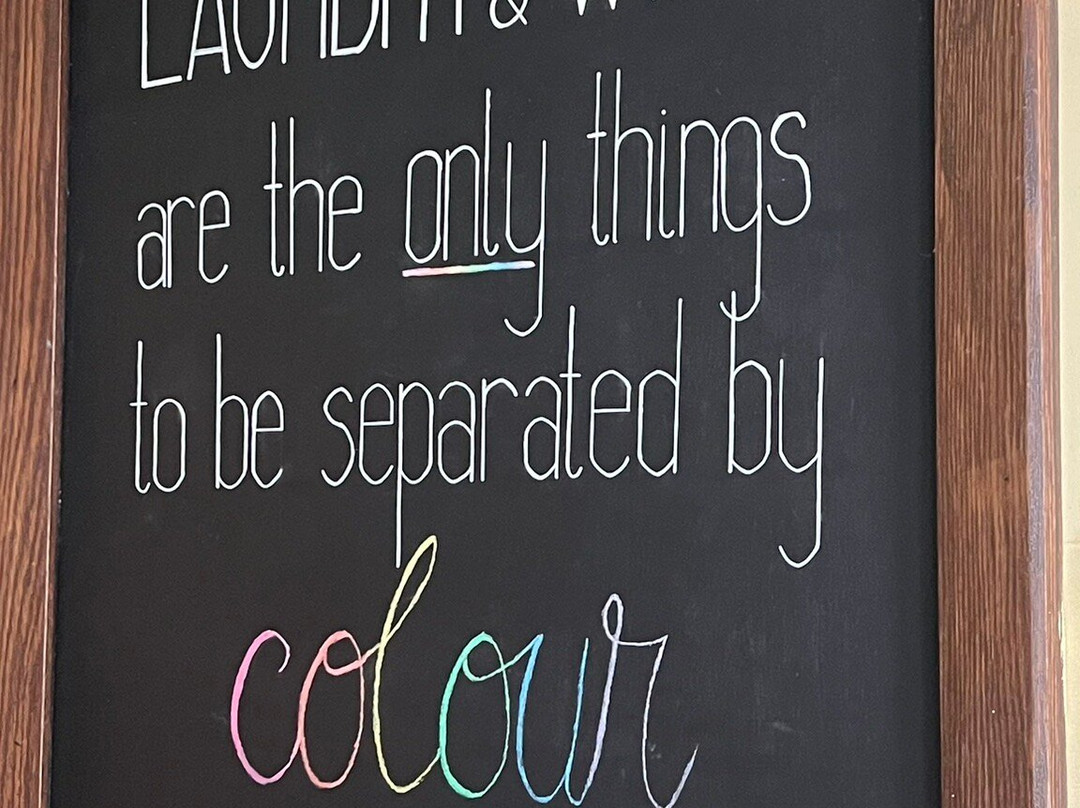 LAUNDRY &
are the only things
to be separated by
colour